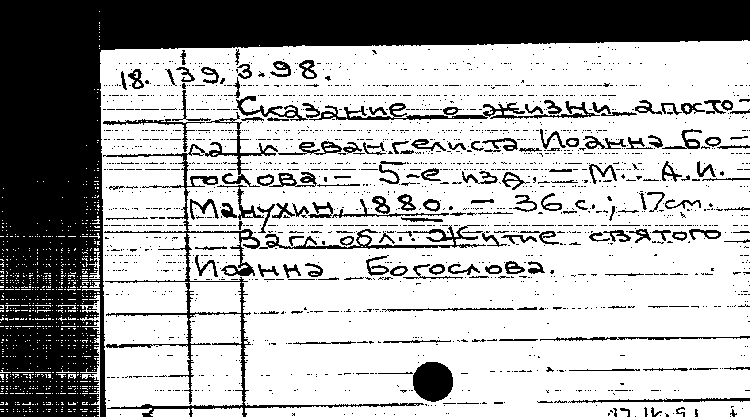 18. 139. 3. 98.
Сказание о жизни апосто-
ла и евангелиста Иоанна Бо-
гослова. - 5-е изд. - М.: А.И.
Манухин, 1880. - 36 с.; 17см.
Загл. обл.: Житие святого
Иоанна Богослова.